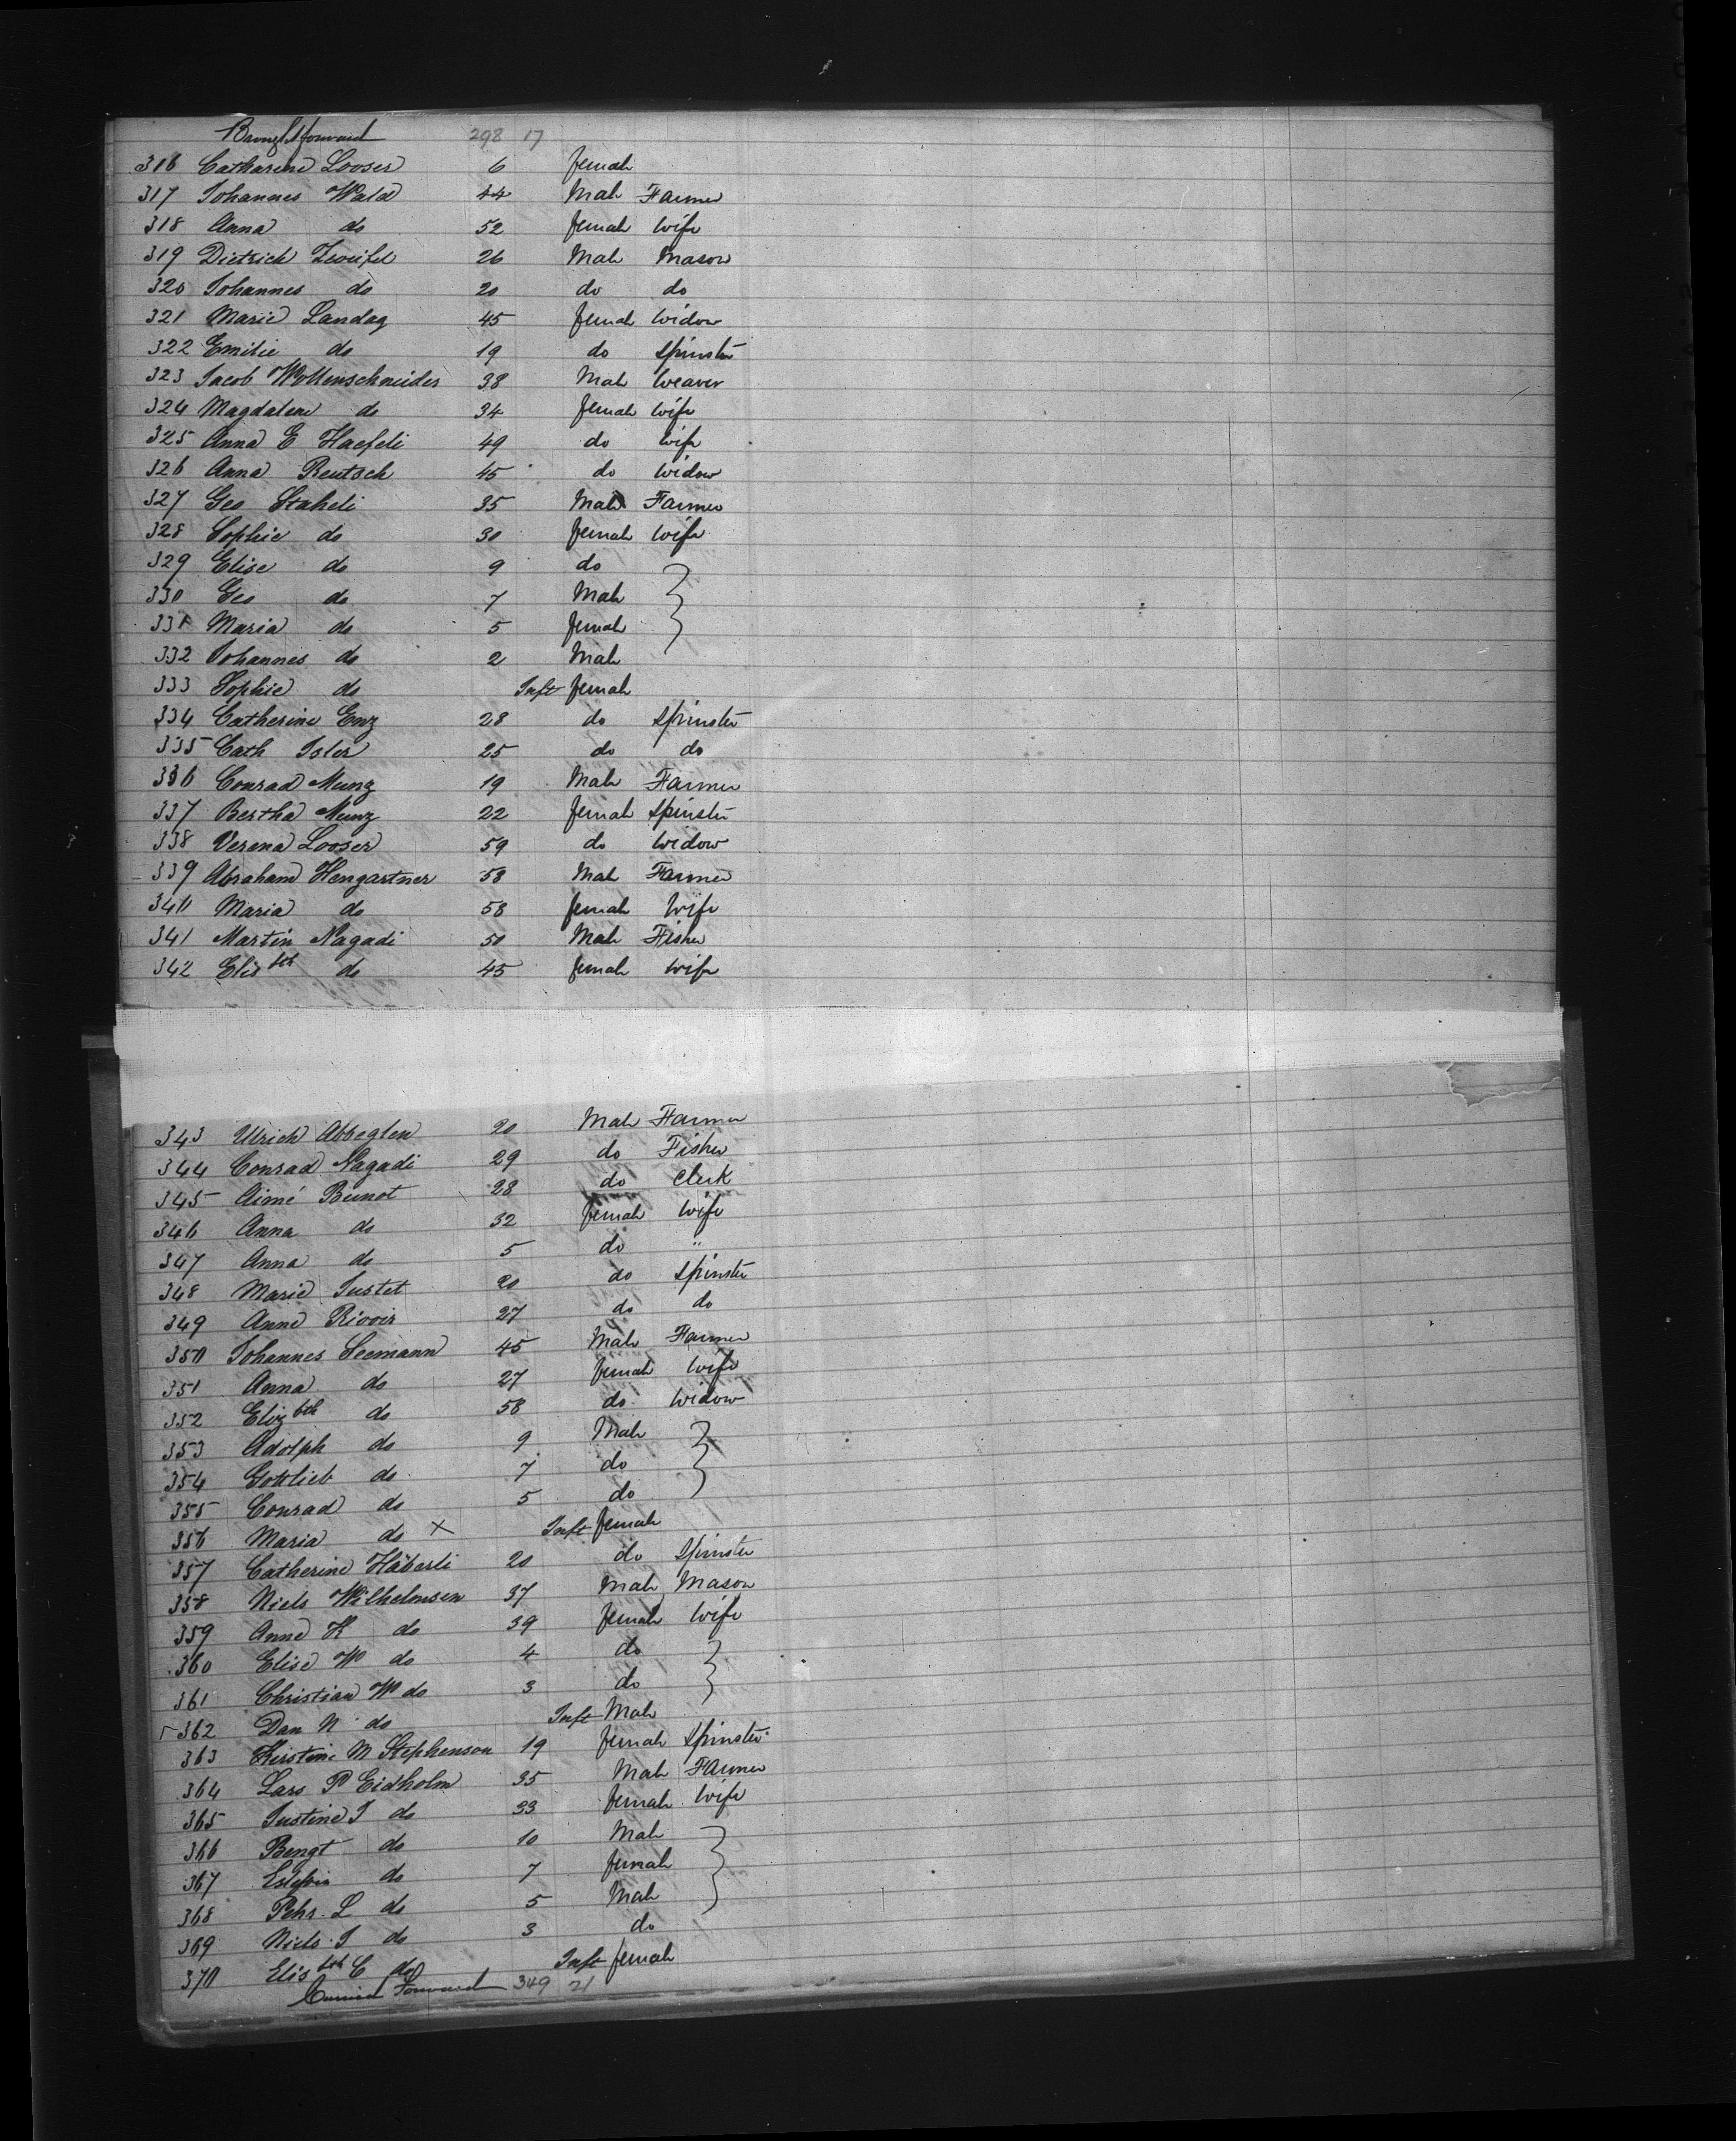 Brought forward 298 17
316 Catharine Looser 6 female
317 Johannes Wald 44 Male Farmer
318 Anna do 52 female wife
319 Dietrich Zweifel 26 Male Mason
320 Johannes do 20 do do
321 Marie Landag 45 female widow
322 Emilie do 19 do Spinster
323 Jacob Wollenschneider 38 Male Weaver
324 Magdalene do 34 female wife
325 Anna E Haefeli 49 do wife
326 Anna Reutsch 45 do widow
327 Geo Staheli 35 Male Farmer
328 Sophie do 30 female wife
329 Elise do 9 do
330 Geo do 7 Male
331 Maria do 5 female
332 Johannes do 2 Male
333 Sophie do Inft female
334 Catherine Enz 28 do Spinster
335 Cath Isler 25 do do
336 Conrad Munz 19 Male Farmer
337 Bertha Munz 22 female Spinster
338 Verena Looser 59 do widow
339 Abraham Hengartner 58 Male Farmer
340 Maria do 58 female wife
341 Martin Nagadi 50 Male Fisher
342 Elisbth do 45 female wife
343 Ulrich Abbeglen 20 Male Farmer
344 Conrad Nagadi 29 do Fisher
345 Aimé Bunot 28 do Clerk
346 Anna do 32 female wife
347 Anna do 5 do "
348 Marie Justet 20 do Spinster
349 Anne Rivoir 27 do do
350 Johannes Seemann 45 Male Farmer
351 Anna do 27 female wife
352 Elizbth do 58 do widow
353 Adolph do 9 Male
354 Gottlieb do 7 do
355 Conrad do 5 do
356 Maria do X Inft female
357 Catherine Häberli 20 do Spinster
358 Niels Wilhelmsen 37 Male Mason
359 Anne K do 39 female wife
360 Elise W do 4 do
361 Christian W do 3 do
362 Dan N do Inft Male
363 Kirstine M Stephenson 19 female Spinster
364 Lars P Eidholm 35 Male Farmer
365 Justine J do 33 female wife
366 Bengt do 10 Male
367 do 7 female
368 Pehr L do 5 Male
369 Niels J do 3 do
370 Elisbth C do Inft female
Carried Forward 349 21